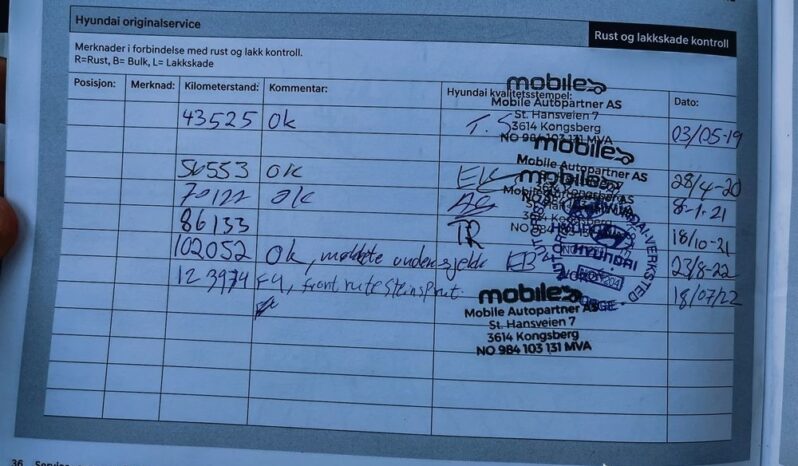 Hyundai originalservice
Rust og lakkskade kontroll
Merknader i forbindelse med rust og lakk kontroll.
R=Rust, B= Bulk, L= Lakkskade
Posisjon: Merknad: Kilometerstand: Kommentar: Hyundai kvalitetsstempel: Dato:
mobile
Mobile Autopartner AS
St. Hansveien 7
3614 Kongsberg
NO 984 103 131 MVA
43525 Ok T.S 03/05-19
mobile
Mobile Autopartner AS
56553 OK EK 28/4-20
mobile
70122 OK 8-1-21
86133 TR 18/10-21
HYUNDAI
102052 Ok, EB 23/8-22
frontrute steinsprut. 18/07/22
mobile
Mobile Autopartner AS
St. Hansveien 7
3614 Kongsberg
NO 984 103 131 MVA
36